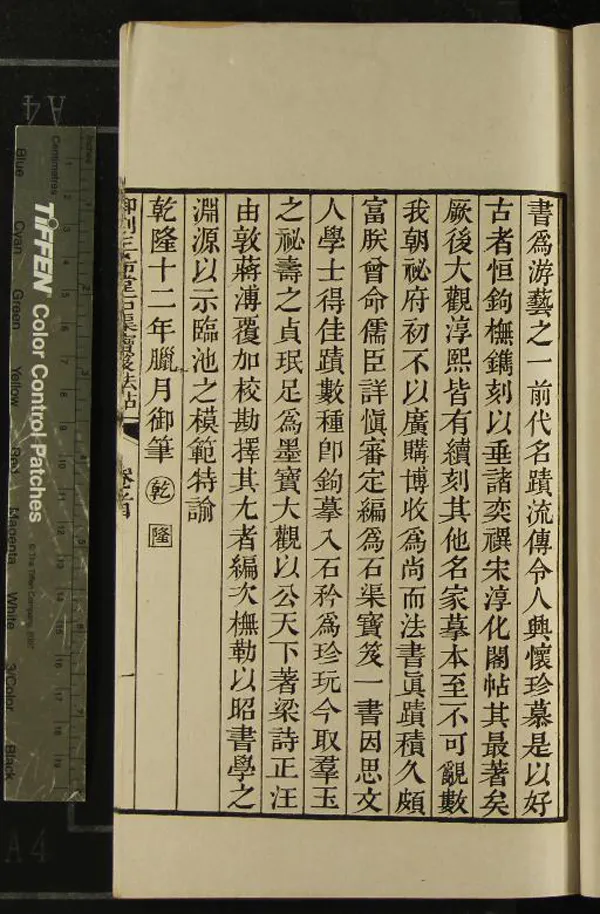 書爲游藝之一前代名蹟流傳令人興懷珍慕是以好
古者恒鉤橅鐫刻以垂諸奕禩宋淳化閣帖其最著矣
厥後大觀淳熙皆有續刻其他名家摹本至不可覼數
我朝祕府初不以廣購博收爲尚而法書眞蹟積久頗
富朕曾命儒臣詳愼審定編爲石渠寶笈一書因思文
人學士得佳蹟數種卽鉤摹入石矜爲珍玩今取羣玉
之祕壽之貞珉足爲墨寶大觀以公天下著梁詩正汪
由敦蔣溥覆加校勘擇其尤者編次橅勒以昭書學之
淵源以示臨池之模範特諭
乾隆十二年臘月御筆 乾 隆
御刻三希堂石渠寶笈法帖 卷首 一
Inches
Centimetres
TIFFEN Color Control Patches
© The Tiffen Company, 2007
Blue Cyan Green Yellow Red Magenta White 3/Color Black
A4
A4